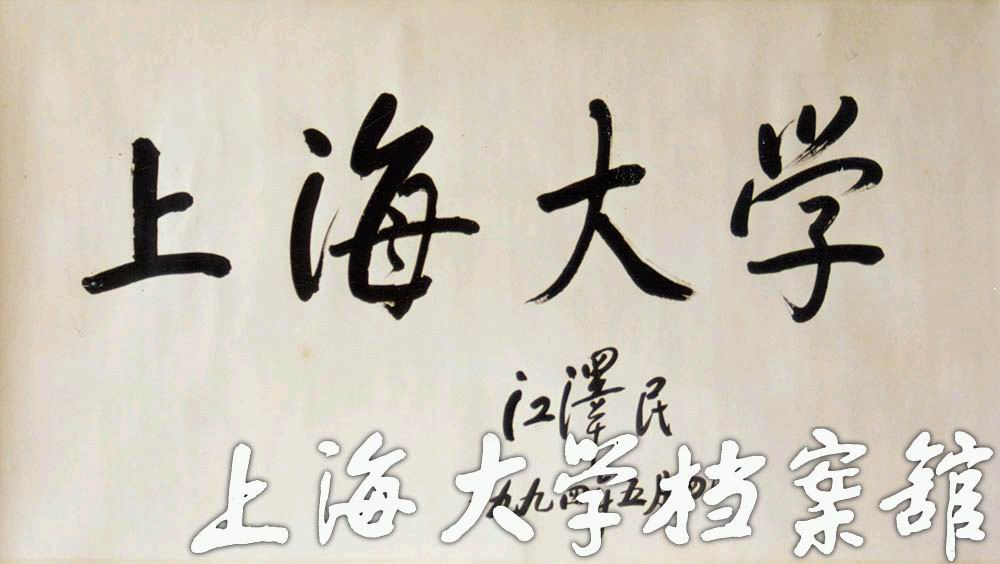 上海大学
江澤民
一九九四年五月四日
上海大学档案舘